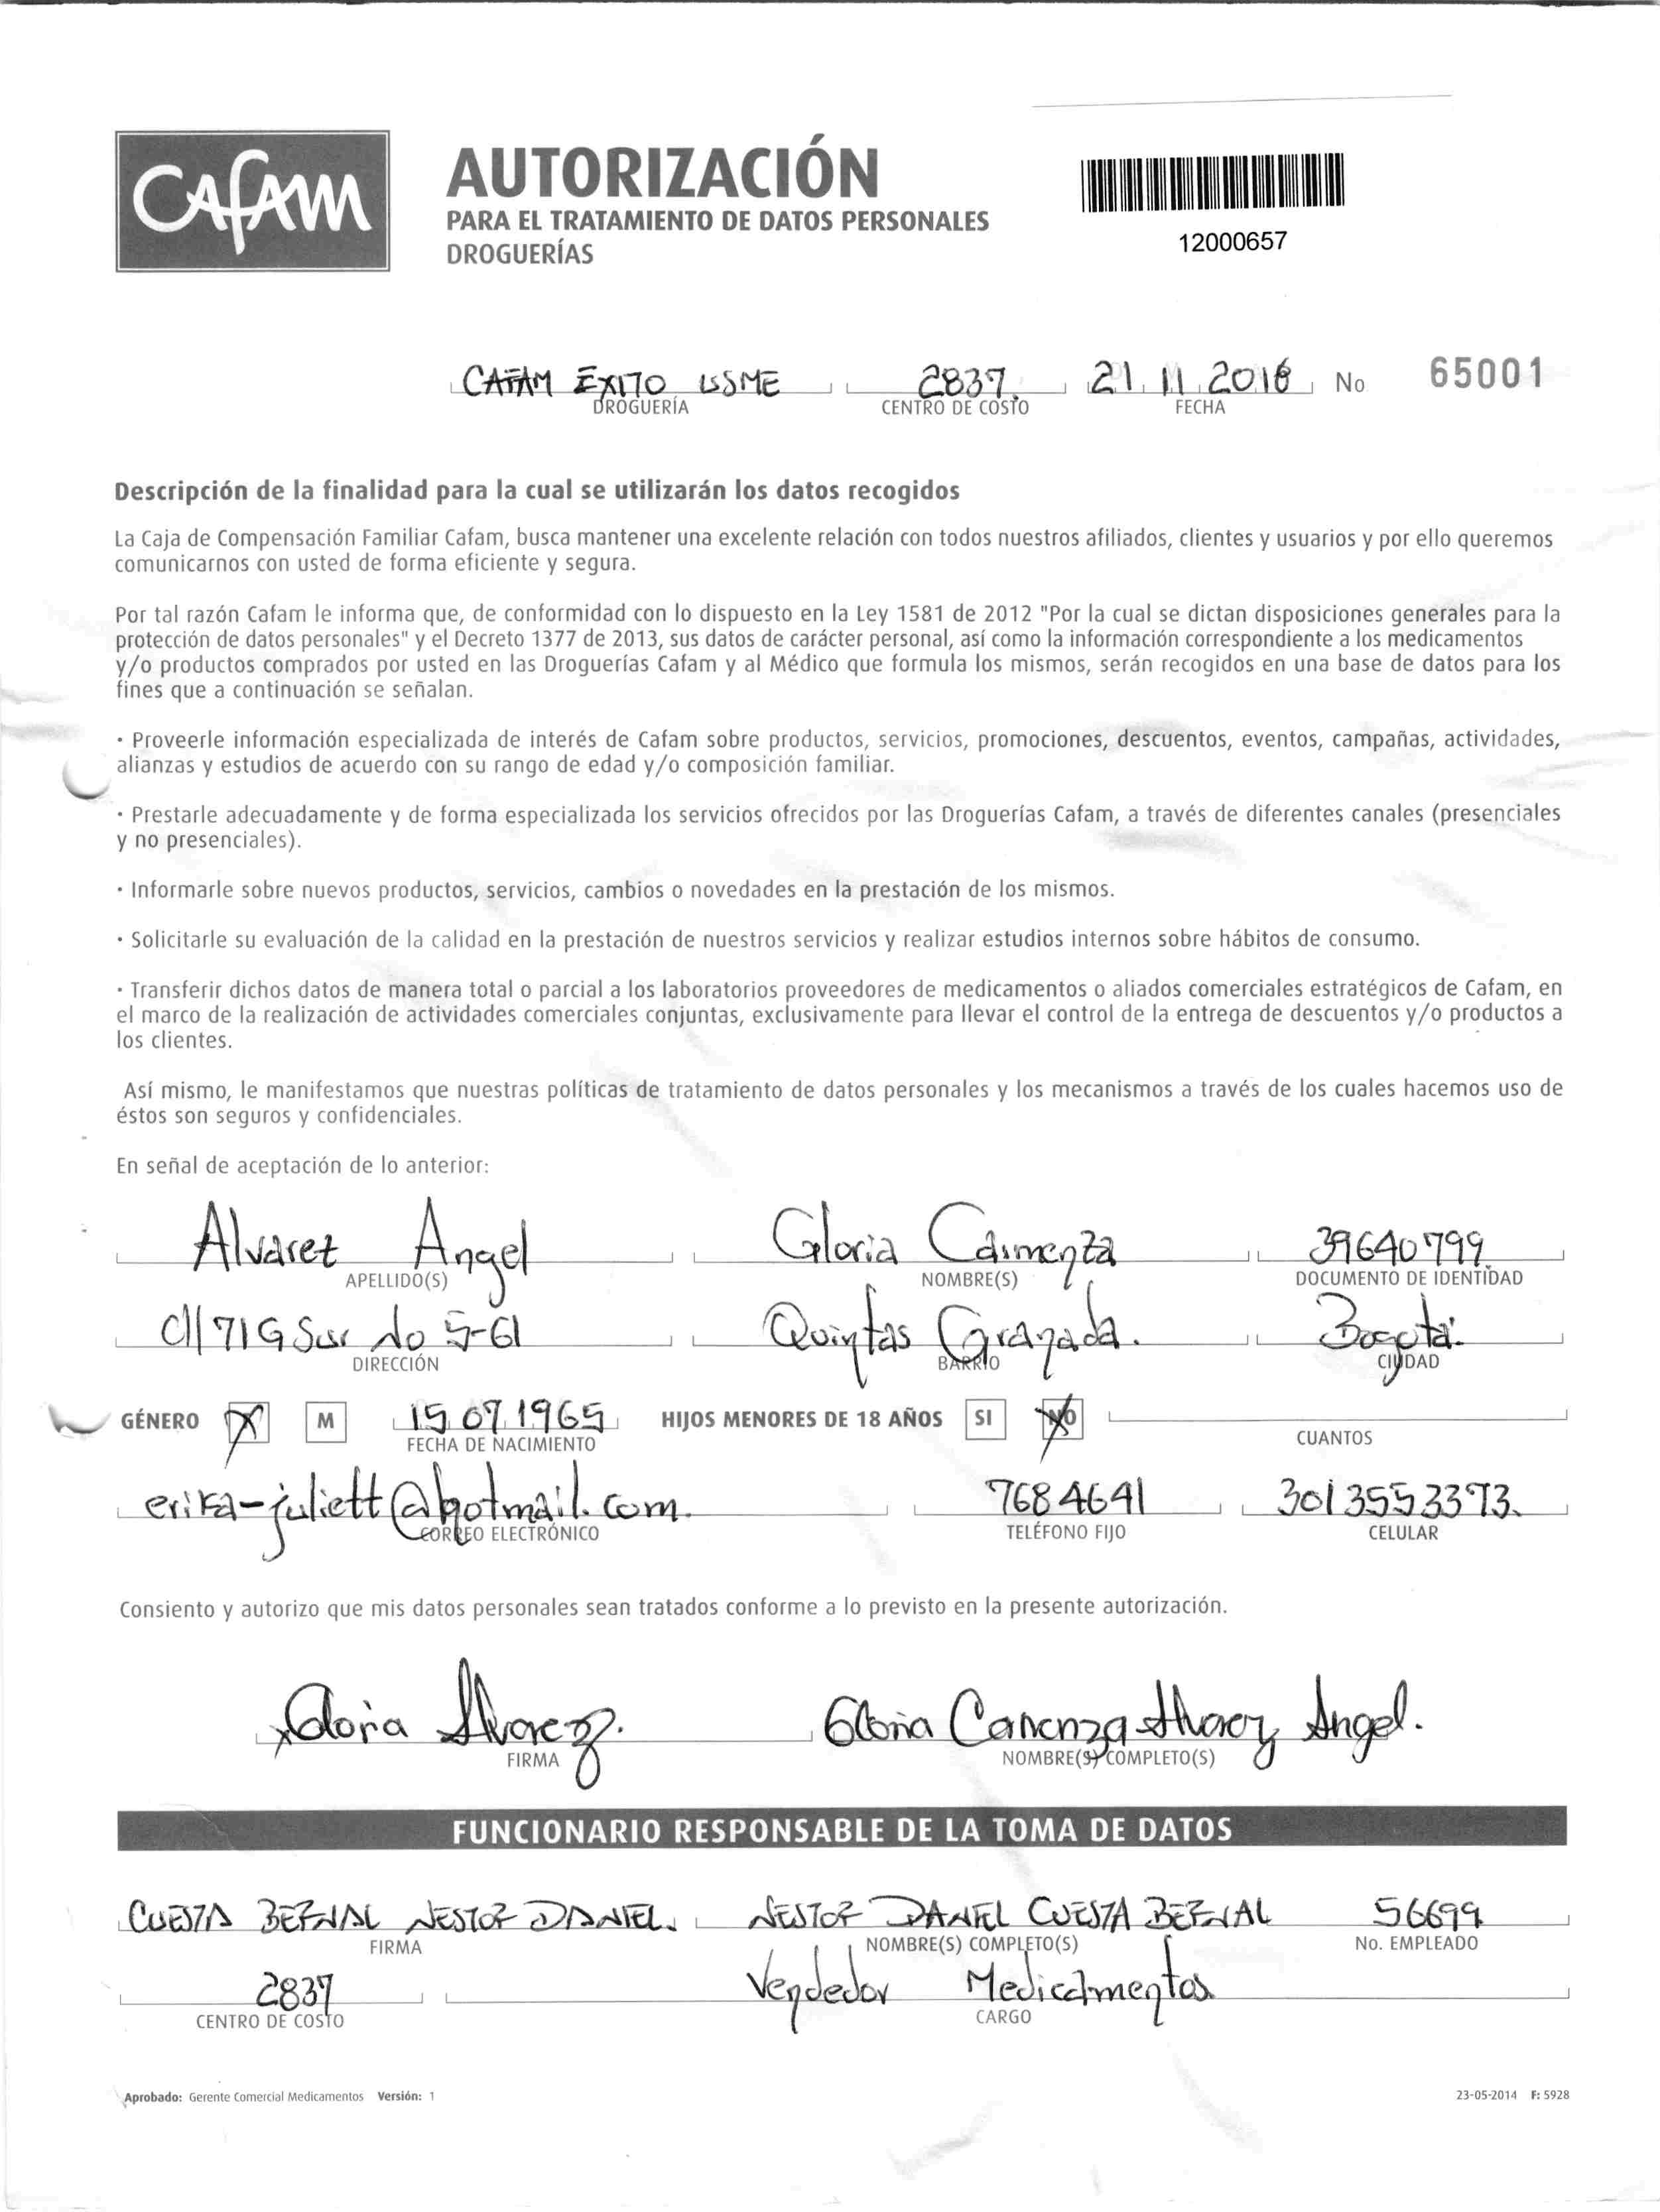 Cafam
AUTORIZACIÓN
PARA EL TRATAMIENTO DE DATOS PERSONALES
DROGUERÍAS
12000657
CAFAM EXITO ISSME 2837. 21 11 2018 No 65001
DROGUERÍA CENTRO DE COSTO FECHA
Descripción de la finalidad para la cual se utilizarán los datos recogidos
La Caja de Compensación Familiar Cafam, busca mantener una excelente relación con todos nuestros afiliados, clientes y usuarios y por ello queremos
comunicarnos con usted de forma eficiente y segura.
Por tal razón Cafam le informa que, de conformidad con lo dispuesto en la Ley 1581 de 2012 "Por la cual se dictan disposiciones generales para la
protección de datos personales" y el Decreto 1377 de 2013, sus datos de carácter personal, así como la información correspondiente a los medicamentos
y/o productos comprados por usted en las Droguerías Cafam y al Médico que formula los mismos, serán recogidos en una base de datos para los
fines que a continuación se señalan.
· Proveerle información especializada de interés de Cafam sobre productos, servicios, promociones, descuentos, eventos, campañas, actividades,
alianzas y estudios de acuerdo con su rango de edad y/o composición familiar.
· Prestarle adecuadamente y de forma especializada los servicios ofrecidos por las Droguerías Cafam, a través de diferentes canales (presenciales
y no presenciales).
· Informarle sobre nuevos productos, servicios, cambios o novedades en la prestación de los mismos.
· Solicitarle su evaluación de la calidad en la prestación de nuestros servicios y realizar estudios internos sobre hábitos de consumo.
· Transferir dichos datos de manera total o parcial a los laboratorios proveedores de medicamentos o aliados comerciales estratégicos de Cafam, en
el marco de la realización de actividades comerciales conjuntas, exclusivamente para llevar el control de la entrega de descuentos y/o productos a
los clientes.
Así mismo, le manifestamos que nuestras políticas de tratamiento de datos personales y los mecanismos a través de los cuales hacemos uso de
éstos son seguros y confidenciales.
En señal de aceptación de lo anterior:
Alvarez Angel Gloria Carmenza 39640799
APELLIDO(S) NOMBRE(S) DOCUMENTO DE IDENTIDAD
Cll 71G Sur No 5-61 Quintas Granada. Bogotá.
DIRECCIÓN BARRIO CIUDAD
GÉNERO X M 15 07 1965 HIJOS MENORES DE 18 AÑOS SI NO
FECHA DE NACIMIENTO CUANTOS
erika-juliett@hotmail.com. 7684641 3013553373.
CORREO ELECTRÓNICO TELÉFONO FIJO CELULAR
Consiento y autorizo que mis datos personales sean tratados conforme a lo previsto en la presente autorización.
x Gloria Alvarez. Gloria Carmenza Alvarez Angel.
FIRMA NOMBRE(S) COMPLETO(S)
FUNCIONARIO RESPONSABLE DE LA TOMA DE DATOS
CUESTA BERNAL NESTOR DANIEL. NESTOR DANIEL CUESTA BERNAL 56699
FIRMA NOMBRE(S) COMPLETO(S) No. EMPLEADO
2837 Vendedor Medicamentos
CENTRO DE COSTO CARGO
Aprobado: Gerente Comercial Medicamentos Versión: 1 23-05-2014 F: 5928